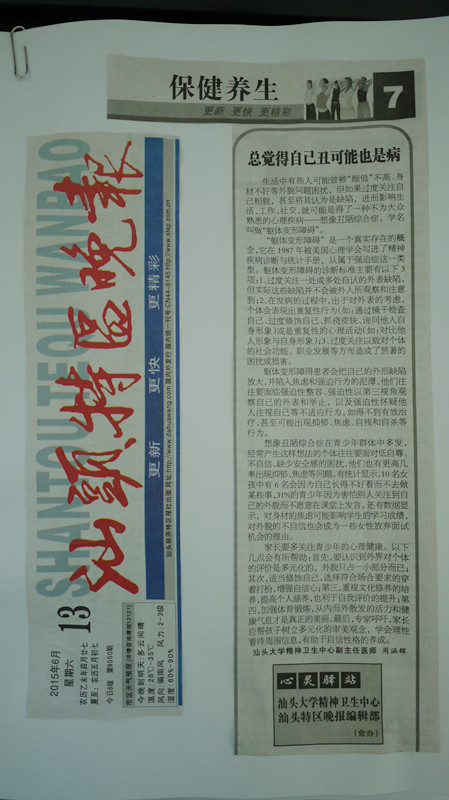 保健养生
更新 更快 更精彩
7
总觉得自己丑可能也是病
生活中有些人可能曾被“颜值”不高、身
材不好等外貌问题困扰，但如果过度关注自
己相貌，甚至将其认为是缺陷，进而影响生
活、工作、社交，就可能是得了一种不为大众
熟悉的心理疾病——想像丑陋综合症，学名
叫做“躯体变形障碍”。
“躯体变形障碍”是一个真实存在的概
念，它在1987年被美国心理学会写进了精神
疾病诊断与统计手册，从属于强迫症这一类
型。躯体变形障碍的诊断标准主要有以下3
项：1、过度关注一处或多处自认的外表缺陷，
但实际这些缺陷并不会被外人所观察和注意
到；2、在发病的过程中，出于对外表的考虑，
个体会表现出重复性行为（如：通过镜子检查
自己、过度修饰自己、抓挠皮肤、询问他人自
身形象）或是重复性的心理活动（如：对比他
人形象与自身形象）；3、过度关注以致对个体
的社会功能、职业发展等方面造成了显著的
困扰或损害。
躯体变形障碍患者会把自己的外形缺陷
放大，并陷入焦虑和强迫行为的泥潭。他们往
往要面临强迫性整容、强迫性以第三视角观
察自己的外表和举止，以及强迫性怀疑他
人注视自己等不适应行为。如得不到有效治
疗，甚至可能出现抑郁、焦虑、自残和自杀等
行为。
想像丑陋综合症在青少年群体中多发，
经常产生这样想法的个体往往要面对低自尊、
不自信、缺少安全感的困扰，他们也有更高几
率出现抑郁、焦虑等问题。有统计显示，10名女
孩中有6名会因为自己长得不好看而不去做
某些事，31%的青少年因为害怕别人关注到自
己的外貌而不愿意在课堂上发言。还有数据显
示，对身材的焦虑可能影响学生的学习成绩，
对外貌的不自信也会成为一些女性放弃面试
机会的理由。
家长要多关注青少年的心理健康。以下
几点会有所帮助：首先，要认识到外界对个体
的评价是多元化的，外貌只占一小部分而已；
其次，适当修饰自己，选择符合场合要求的穿
着打扮，增强自信心；第三，重视文化修养的培
养，提高个人涵养，也利于自我评价的提升；第
四，加强体育锻炼，从内而外散发的活力和健
康气息才是真正的美丽。最后，专家呼吁，家长
应帮孩子树立多元化的审美观念，学会理性
看待周围信息，有助于自信性格的养成。
汕头大学精神卫生中心副主任医师
心灵驿站
汕头大学精神卫生中心
汕头特区晚报编辑部
（合办）
SHANTOU TEQU WANBAO
汕頭特區晚報
更新 更快 更精彩
汕头经济特区报社出版 网址：http://www.dahuawang.com 国内外发行 国内统一刊号：CN44-0145 http://www.step.com.cn
2015年6月
13
星期六
农历乙未年四月廿七
夏至：农历五月初七
今日8版 第8050期
市区天气预报
今晚到明天：多云间晴
温度：28℃~35℃
风向：偏南风 风力：2-3级
湿度：60%~90%